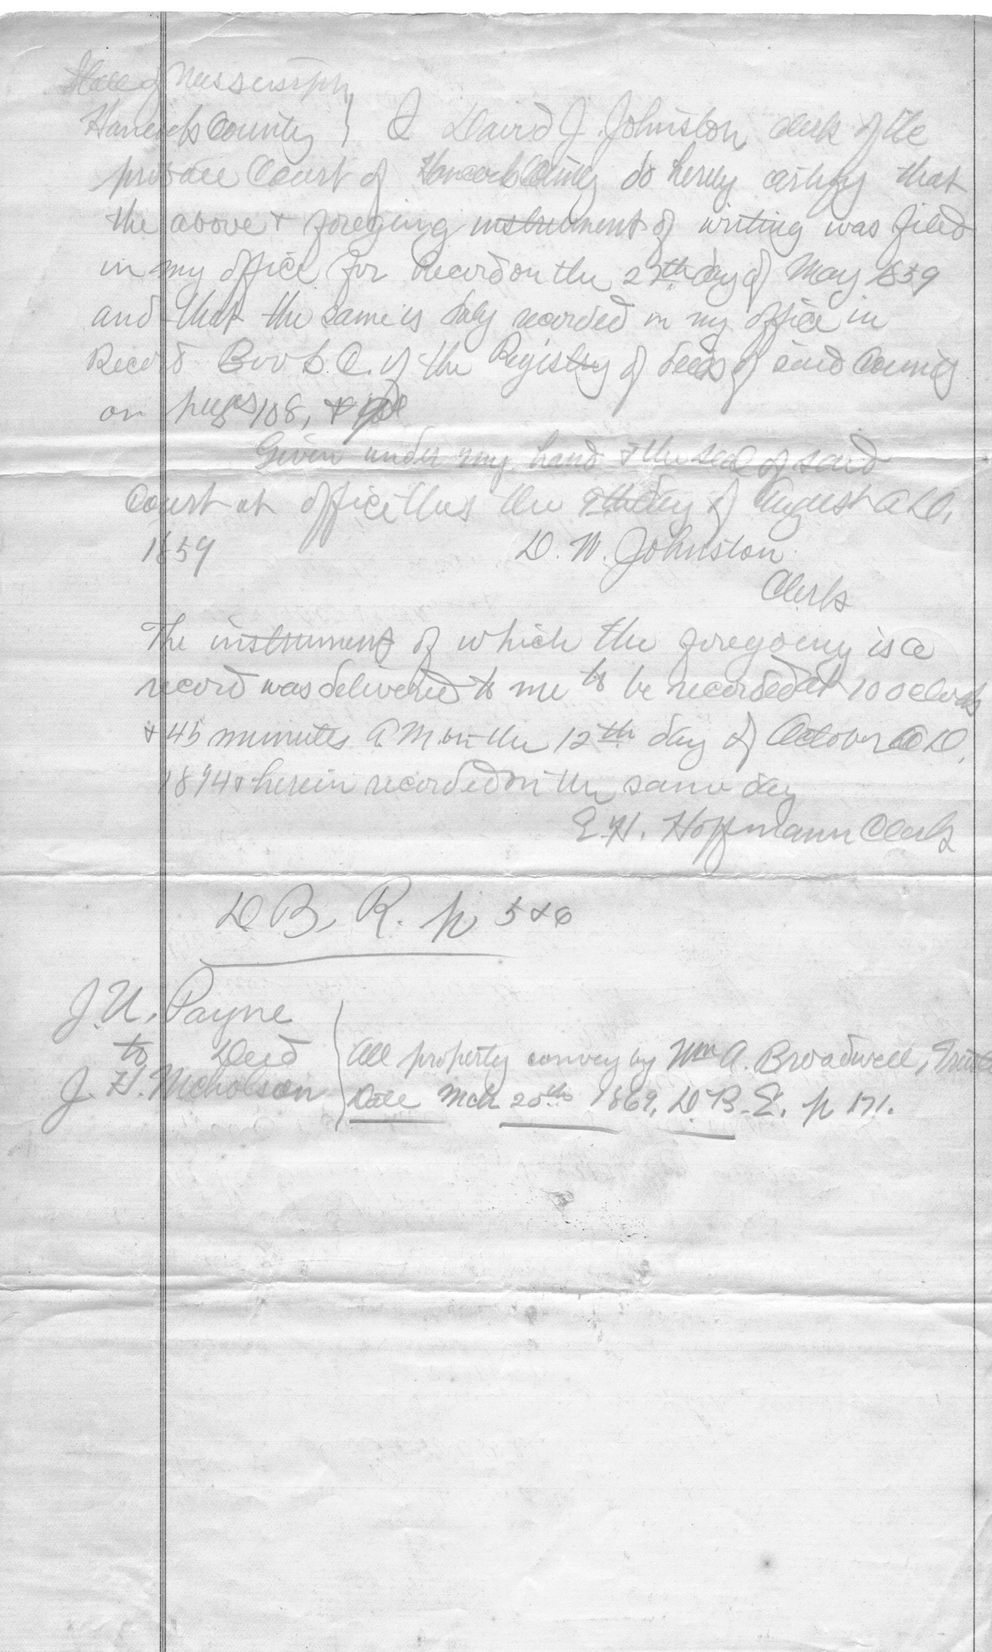 State of Mississippi
Hancock County } I David J. Johnston clerk of the
probate Court of Hancock County do hereby certify that
the above & foregoing instrument of writing was filed
in my office for Record on the 27th day of May 1839
and that the same is duly recorded in my office in
Record Book C. of the Registry of deeds of said County
on pages 108, &
Given under my hand & the seal of said
Court at office this the 9th day of August A.D.
1859 D. W. Johnston
Clerk
The instrument of which the foregoing is a
record was delivered to me to be recorded at 10 oclock
& 45 minutes A.M. on the 12th day of October A D.
1894 & herein recorded on the same day
E. H. Hoffmann Clerk
D B, R. p 5 & 6
J. U. Payne
to Deed
J. H. Nicholson
All property convey by Wm A. Broadwell, Trustee
Date Mch 20th 1869, D. B. E. p 171.